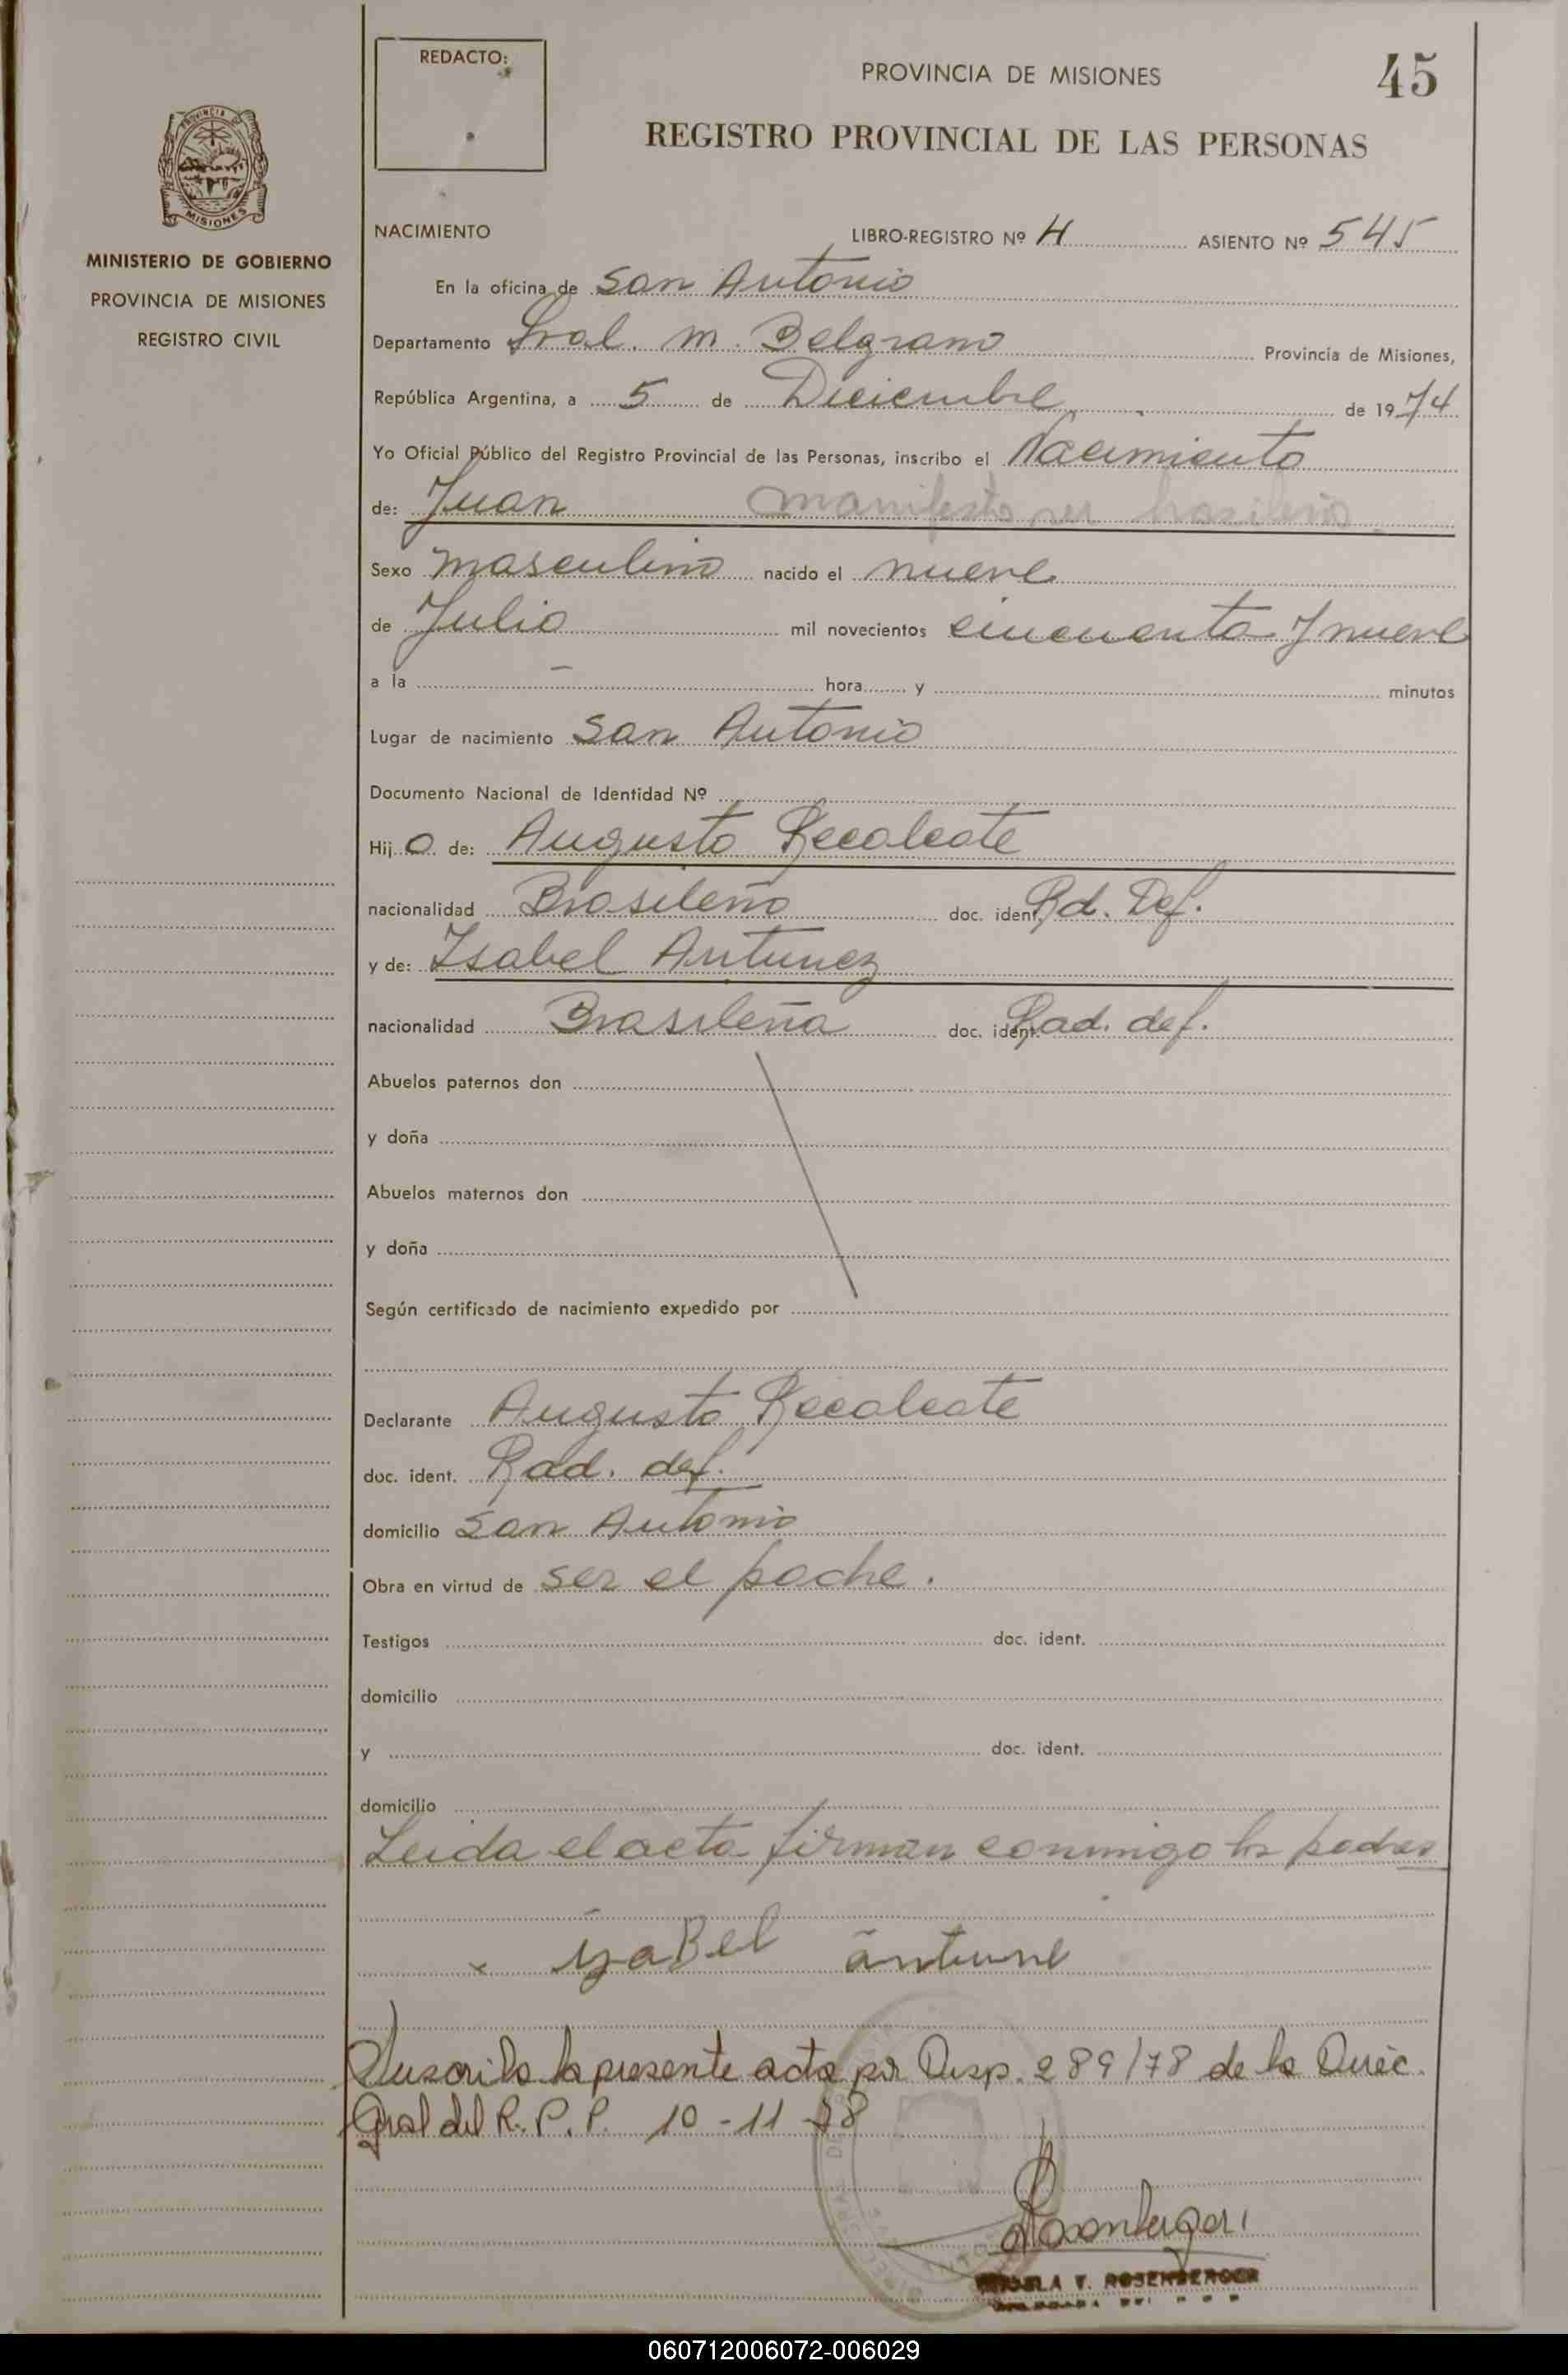 REDACTO:
PROVINCIA DE MISIONES
45
REGISTRO PROVINCIAL DE LAS PERSONAS
MISIONES
MINISTERIO DE GOBIERNO
PROVINCIA DE MISIONES
REGISTRO CIVIL
NACIMIENTO LIBRO-REGISTRO Nº 4 ASIENTO Nº 545
En la oficina de San Antonio
Departamento Gral. M. Belgrano Provincia de Misiones,
República Argentina, a 5 de Diciembre de 1974
Yo Oficial Público del Registro Provincial de las Personas, inscribo el Nacimiento
de: Juan manifesto ser brasileño.
Sexo masculino nacido el nueve
de Julio mil novecientos cincuenta y nueve
a la — hora y minutos
Lugar de nacimiento San Antonio
Documento Nacional de Identidad Nº
Hij o de: Augusto Recalcate
nacionalidad Brasileño doc. ident. Rd. Def.
y de: Isabel Antunez
nacionalidad Brasileña doc. ident. Rad. def.
Abuelos paternos don
y doña
Abuelos maternos don
y doña
Según certificado de nacimiento expedido por
Declarante Augusto Recalcate
doc. ident. Rad. def.
domicilio San Antonio
Obra en virtud de ser el padre.
Testigos doc. ident.
domicilio
y doc. ident.
domicilio
Leida el acta firman conmigo los padres
x yzaBel antune
Suscrita la presente acta por Disp. 289/78 de la Direc.
Gral del R. P. P. 10-11-78
Rosenberger
F. ROSENBERGER
060712006072-006029